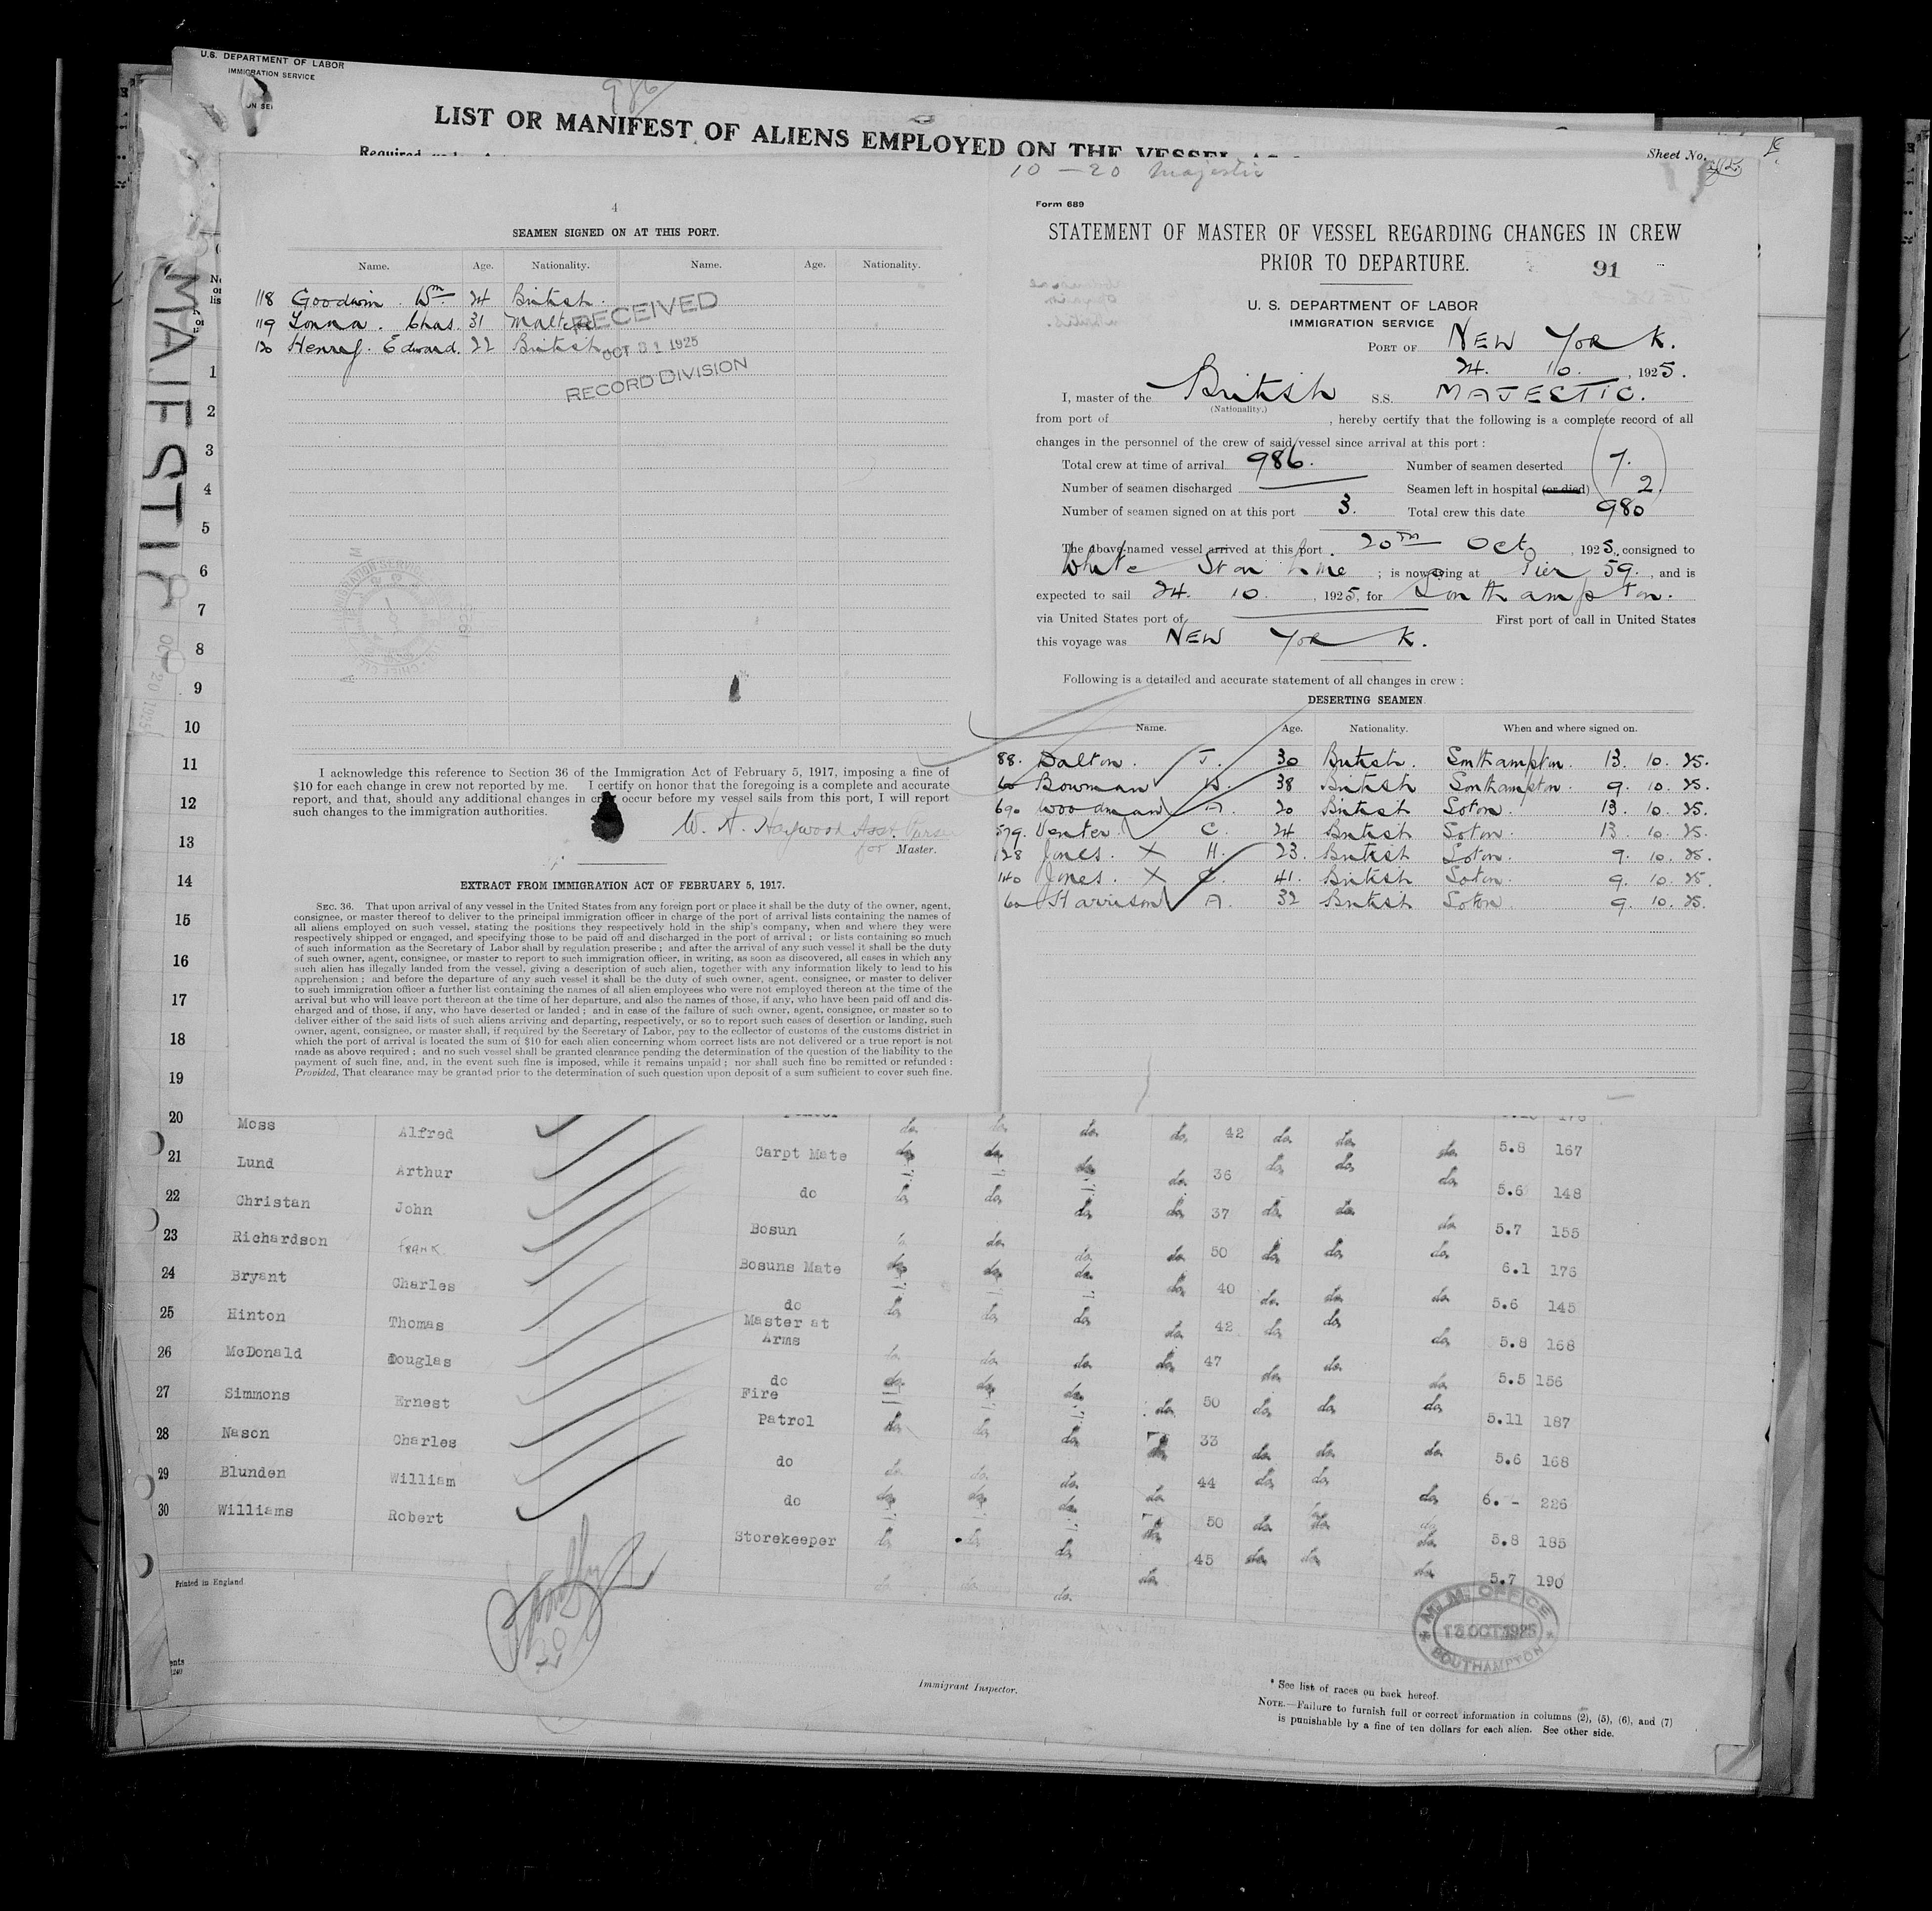 U.S. DEPARTMENT OF LABOR
IMMIGRATION SERVICE
986
LIST OR MANIFEST OF ALIENS EMPLOYED ON THE VESSEL
Sheet No.
MAJESTIC
OCT 20 1925
4
SEAMEN SIGNED ON AT THIS PORT.
Name. Age. Nationality. Name. Age. Nationality.
118 Goodwin. Wm 24 British.
119 Chas. 31 Maltese
120 Edward. 22 British
RECEIVED
OCT 31 1925
RECORD DIVISION
I acknowledge this reference to Section 36 of the Immigration Act of February 5, 1917, imposing a fine of
$10 for each change in crew not reported by me. I certify on honor that the foregoing is a complete and accurate
report, and that, should any additional changes in crew occur before my vessel sails from this port, I will report
such changes to the immigration authorities.
W. A. Haywood Asst. Purser
for Master.
EXTRACT FROM IMMIGRATION ACT OF FEBRUARY 5, 1917.
SEC. 36. That upon arrival of any vessel in the United States from any foreign port or place it shall be the duty of the owner, agent,
consignee, or master thereof to deliver to the principal immigration officer in charge of the port of arrival lists containing the names of
all aliens employed on such vessel, stating the positions they respectively hold in the ship's company, when and where they were
respectively shipped or engaged, and specifying those to be paid off and discharged in the port of arrival; or lists containing so much
of such information as the Secretary of Labor shall by regulation prescribe; and after the arrival of any such vessel it shall be the duty
of such owner, agent, consignee, or master to report to such immigration officer, in writing, as soon as discovered, all cases in which any
such alien has illegally landed from the vessel, giving a description of such alien, together with any information likely to lead to his
apprehension; and before the departure of any such vessel it shall be the duty of such owner, agent, consignee, or master to deliver
to such immigration officer a further list containing the names of all alien employees who were not employed thereon at the time of the
arrival but who will leave port thereon at the time of her departure, and also the names of those, if any, who have been paid off and dis-
charged and of those, if any, who have deserted or landed; and in case of the failure of such owner, agent, consignee, or master so to
deliver either of the said lists of such aliens arriving and departing, respectively, or so to report such cases of desertion or landing, such
owner, agent, consignee, or master shall, if required by the Secretary of Labor, pay to the collector of customs of the customs district in
which the port of arrival is located the sum of $10 for each alien concerning whom correct lists are not delivered or a true report is not
made as above required; and no such vessel shall be granted clearance pending the determination of the question of the liability to the
payment of such fine, and, in the event such fine is imposed, while it remains unpaid; nor shall such fine be remitted or refunded:
Provided, That clearance may be granted prior to the determination of such question upon deposit of a sum sufficient to cover such fine.
10 - 20 Majestic
Form 689
STATEMENT OF MASTER OF VESSEL REGARDING CHANGES IN CREW
PRIOR TO DEPARTURE.
91
U. S. DEPARTMENT OF LABOR
IMMIGRATION SERVICE
PORT OF NEW YORK.
24. 10. , 1925.
I, master of the British S.S. MAJESTIC.
(Nationality.)
from port of , hereby certify that the following is a complete record of all
changes in the personnel of the crew of said vessel since arrival at this port:
Total crew at time of arrival 986. Number of seamen deserted 7.
Number of seamen discharged Seamen left in hospital (or died) 2.
Number of seamen signed on at this port 3. Total crew this date 980
The above-named vessel arrived at this port 20TH Oct , 1925, consigned to
White Star Line ; is now lying at Pier 59. , and is
expected to sail 24. 10. , 1925, for Southampton.
via United States port of First port of call in United States
this voyage was NEW YORK.
Following is a detailed and accurate statement of all changes in crew:
DESERTING SEAMEN.
Name. Age. Nationality. When and where signed on.
88. Dalton. J. 30 British. Southampton. 13. 10. 25.
60 Bowman 38 British Southampton. 9. 10. 25.
690 Woodman A. 20 British Soton. 13. 10. 25.
579. Venter. C. 24 British Soton. 13. 10. 25.
128 Jones. X H. 23. British Soton. 9. 10. 25.
140 Jones. X C. 41. British Soton. 9. 10. 25.
60 Harrison A. 32 British Soton. 9. 10. 25.
1
2
3
4
5
6
7
8
9
10
11
12
13
14
15
16
17
18
19
20 Moss Alfred do. do. do. do. 42 do. do. do. 5.8 167
21 Lund Arthur Carpt Mate do. do. do. do. 36 do. do. do. 5.6 148
22 Christan John do do. do. do. do. 37 do. do. do. 5.7 155
23 Richardson FRANK Bosun do. do. do. 50 do. do. do. 6.1 176
24 Bryant Charles Bosuns Mate do. do. do. do. 40 do. do. do. 5.6 145
25 Hinton Thomas do do. do. do. do. 42 do. do. do. 5.8 168
26 McDonald Douglas Master at Arms do. do. do. do. 47 do. do. do. 5.5 156
27 Simmons Ernest do do. do. do. do. 50 do. do. do. 5.11 187
28 Nason Charles Fire Patrol do. do. do. do. 33 do. do. do. 5.6 168
29 Blunden William do do. do. do. do. 44 do. do. do. 6. - 226
30 Williams Robert do do. do. do. do. 50 do. do. do. 5.8 185
Storekeeper do. do. do. do. 45 do. do. do. 5.7 190
Printed in England
M.M. OFFICE
13 OCT 1925
SOUTHAMPTON
Immigrant Inspector.
* See list of races on back hereof.
NOTE.—Failure to furnish full or correct information in columns (2), (5), (6), and (7)
is punishable by a fine of ten dollars for each alien. See other side.